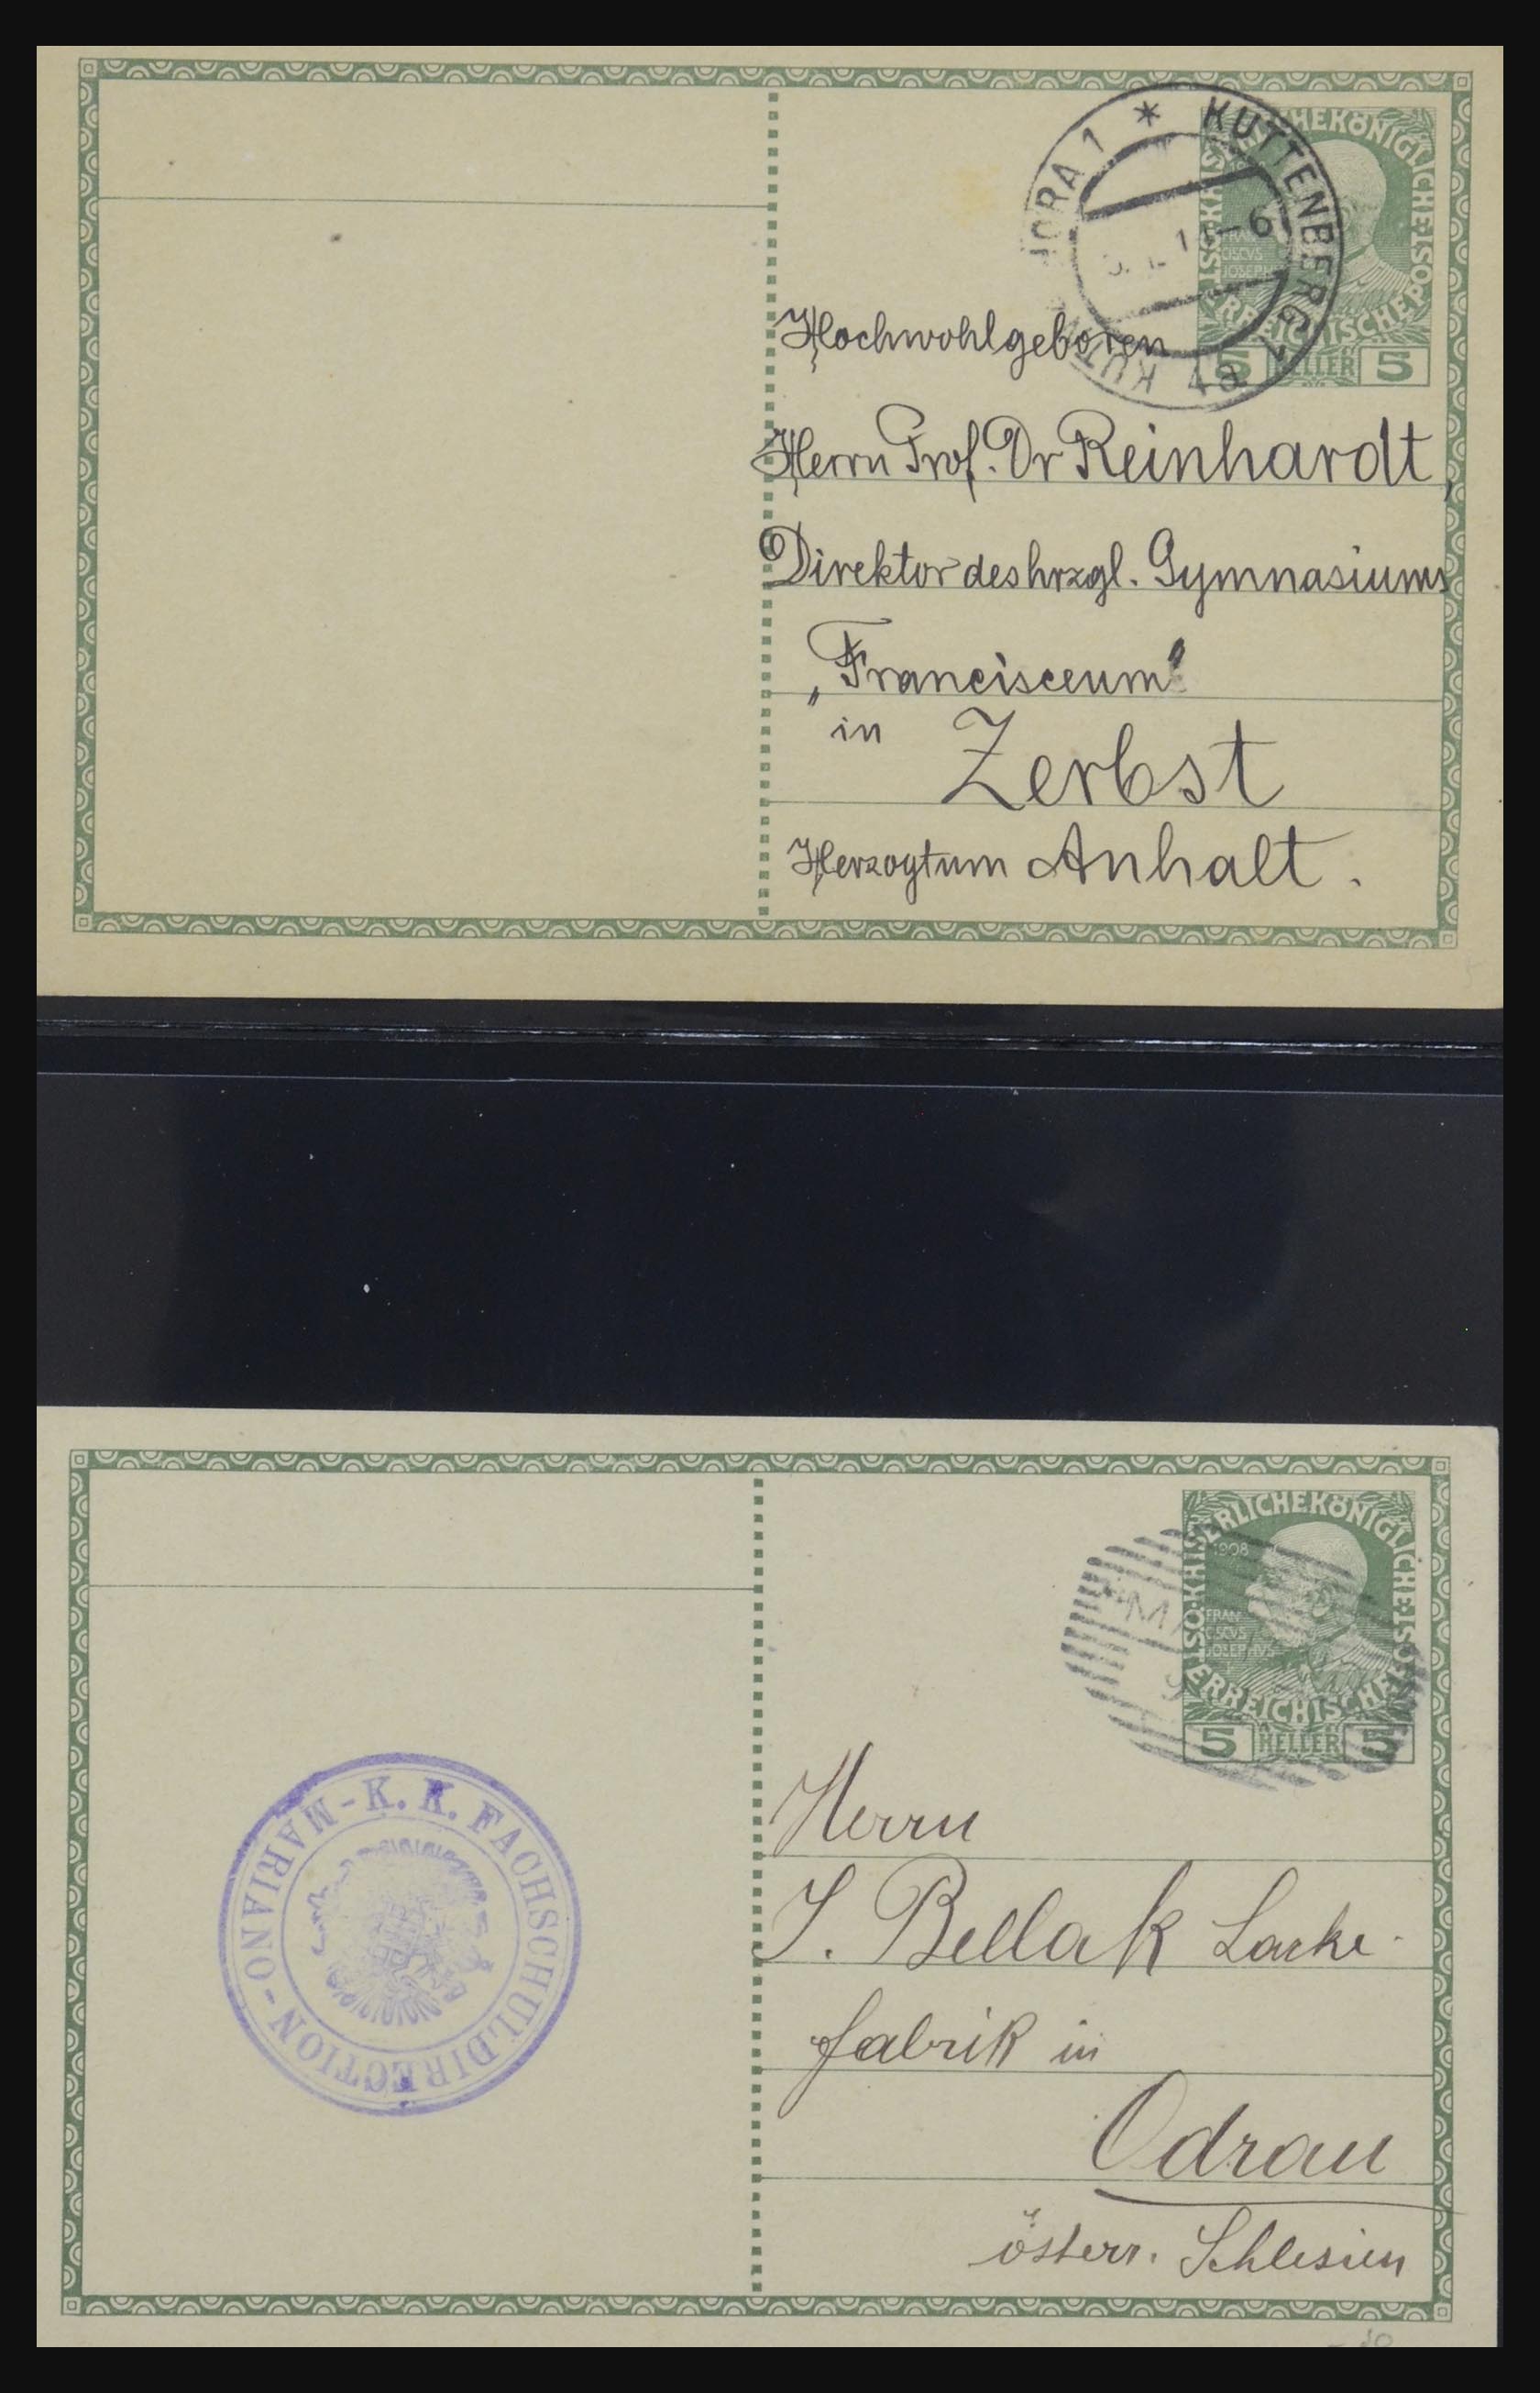 KUTTENBERG 1
HORA 1 *
KAISERLICHEKÖNIGLICHE·ÖSTERREICHISCHEPOST
FRAN
CISCVS
JOSEPHVS
5 HELLER 5
Hochwohlgeboren
Herrn Prof. Dr Reinhardt,
Direktor des hrzgl. Gymnasiums
„Francisceum“
in Zerbst
Herzogtum Anhalt.
KAISERLICHEKÖNIGLICHE·ÖSTERREICHISCHEPOST
1908
FRAN
CISCVS
JOSEPHVS
5 HELLER 5
K. K. FACHSCHULDIRECTION - MARIANO -
Herrn
S. Bellak Lacke-
fabrik in
Odrau
österr. Schlesien